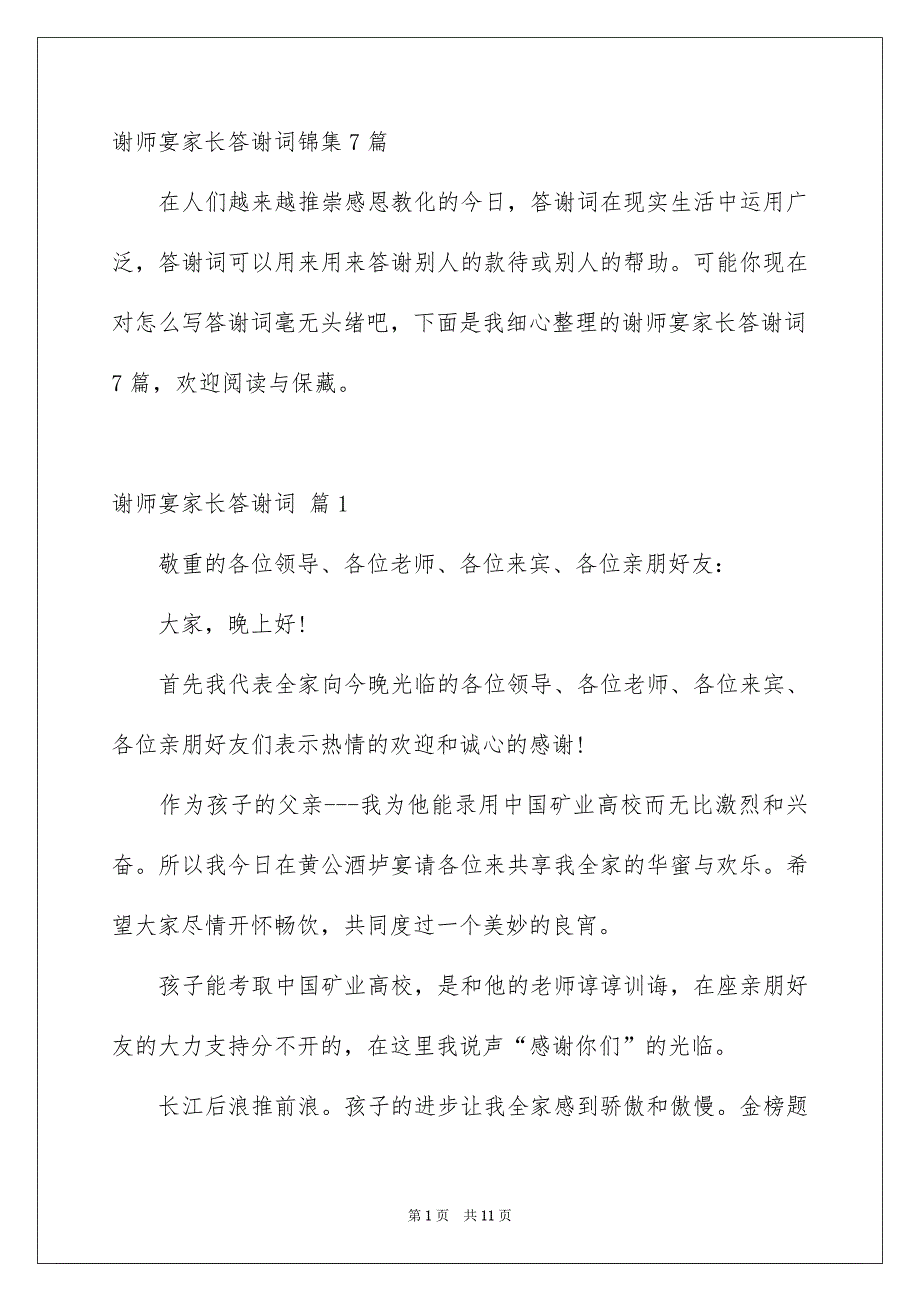 谢师宴家长答谢词锦集 7 篇
在人们越来越推崇感恩教化的今日，答谢词在现实生活中运用广
泛，答谢词可以用来用来答谢别人的款待或别人的帮助。可能你现在
对怎么写答谢词毫无头绪吧，下面是我细心整理的谢师宴家长答谢词
7 篇，欢迎阅读与保藏。
谢师宴家长答谢词 篇 1
敬重的各位领导、各位老师、各位来宾、各位亲朋好友：
大家，晚上好！
首先我代表全家向今晚光临的各位领导、各位老师、各位来宾、
各位亲朋好友们表示热情的欢迎和诚心的感谢！
作为孩子的父亲---我为他能录用中国矿业高校而无比激烈和兴
奋。所以我今日在黄公酒垆宴请各位来共享我全家的华蜜与欢乐。希
望大家尽情开怀畅饮，共同度过一个美妙的良宵。
孩子能考取中国矿业高校，是和他的老师谆谆训诲，在座亲朋好
友的大力支持分不开的，在这里我说声“感谢你们”的光临。
长江后浪推前浪。孩子的进步让我全家感到骄傲和傲慢。金榜题
第 1 页 共 11 页